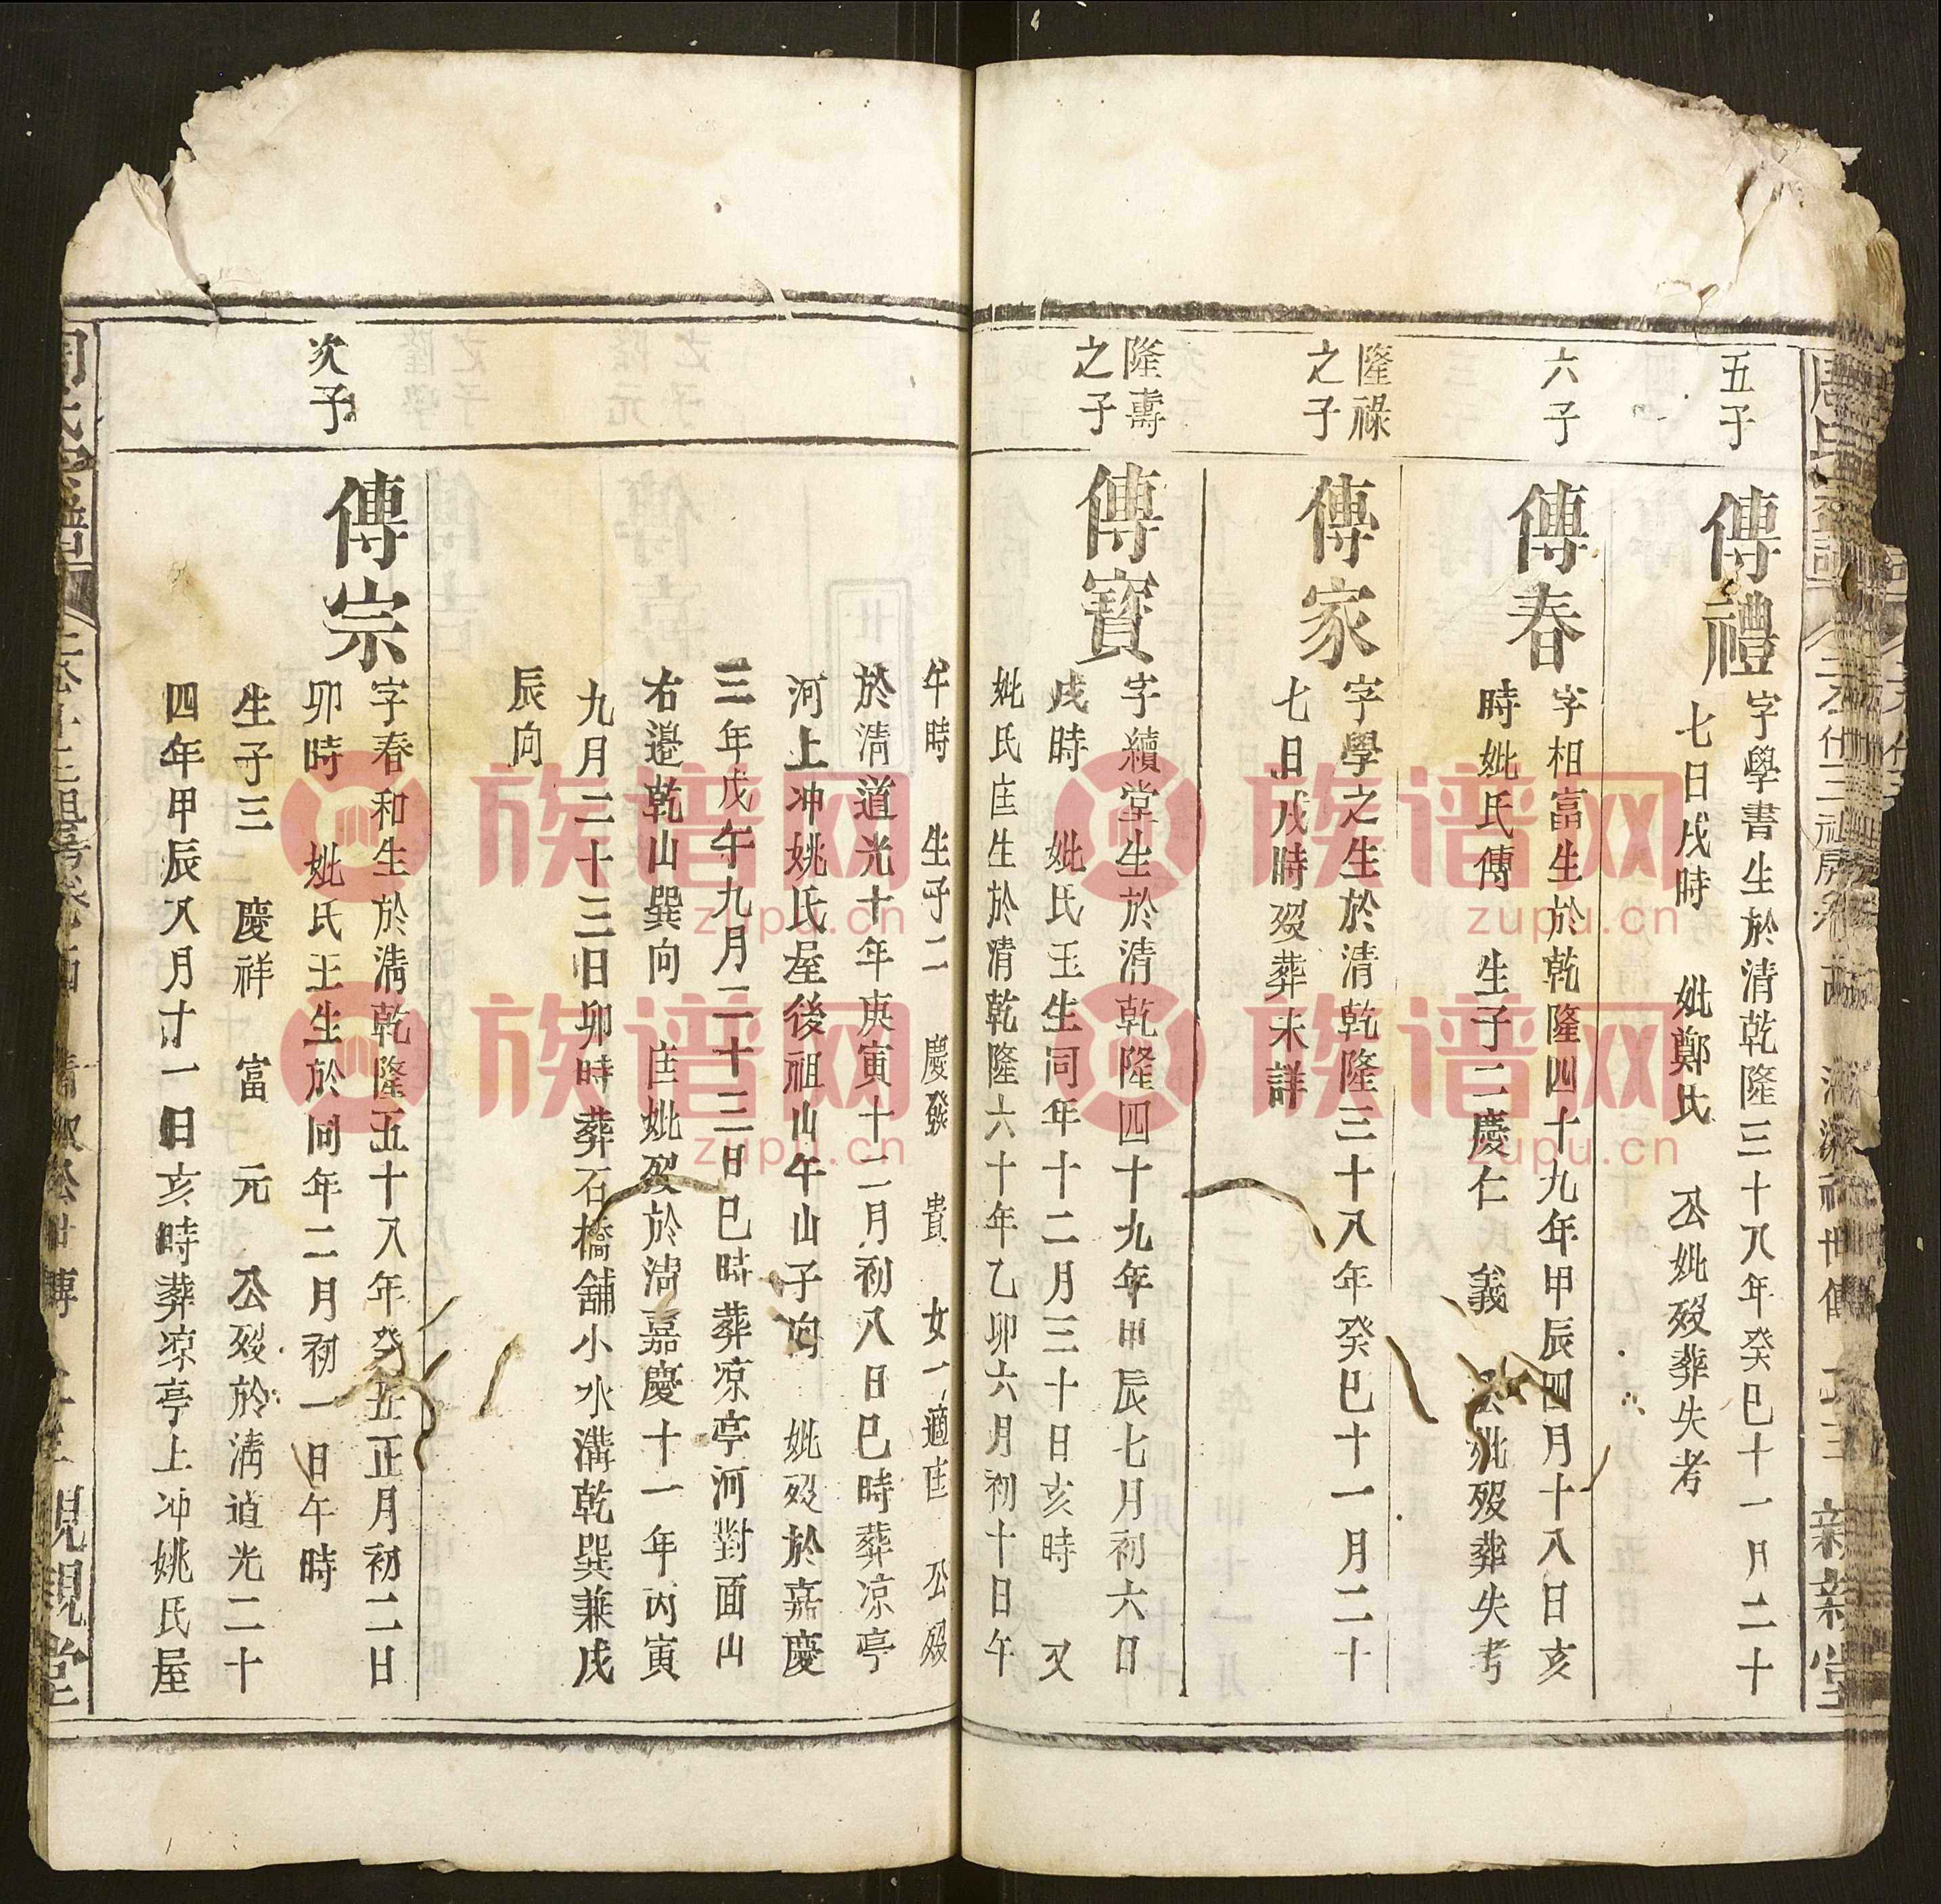 五子
傳禮
字學書生於清乾隆三十八年癸巳十一月二十
七日戌時 妣鄭氏 公妣歿葬失考
六子
傳春
字相富生於乾隆四十九年甲辰四月十八日亥
時妣氏傳 生子二慶仁 義 公妣歿葬失考
隆祿
之子
傳家
字學之生於清乾隆三十八年癸巳十一月二十
七日戌時歿葬未詳
隆壽
之子
傳寳
字續堂生於清乾隆四十九年甲辰七月初六日
戌時 妣氏玉生同年十二月三十日亥時 又
妣氏庄生於清乾隆六十年乙卯六月初十日午
午時 生子二 慶發 貴 女一適庄 公歿
於清道光十年庚寅十二月初八日巳時葬凉亭
河上冲姚氏屋後祖山午山子向 妣歿於嘉慶
三年戊午九月二十三日巳時葬凉亭河對面山
右邉乾山巽向 庄妣歿於清嘉慶十一年丙寅
九月二十三日卯時葬石橋舖小水溝乾巽兼戌
辰向
次子
傳宗
字春和生於清乾隆五十八年癸丑正月初二日
卯時 妣氏王生於同年二月初一日午時
生子三 慶祥 富 元 公歿於清道光二十
四年甲辰八月廿一日亥時葬凉亭上冲姚氏屋
親親堂
族谱网
zupu.cn
族谱网
zupu.cn
族谱网
zupu.cn
族谱网
zupu.cn